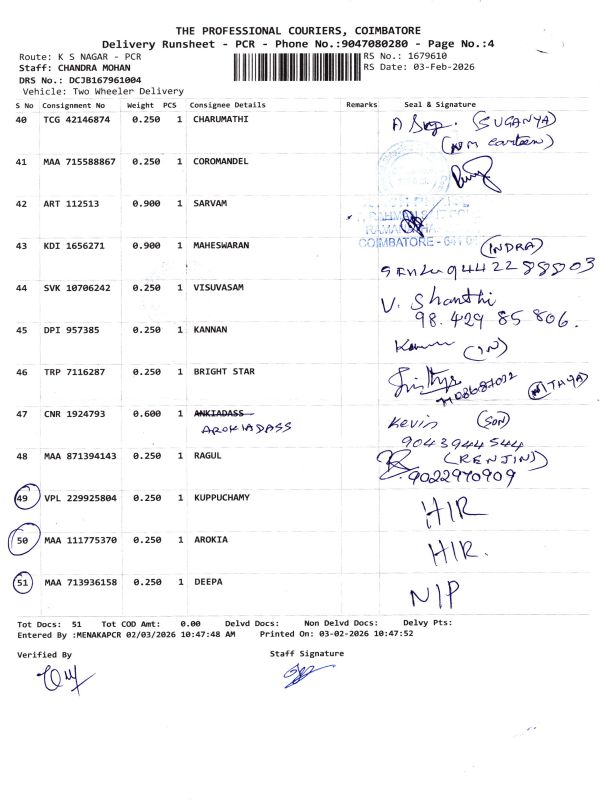 THE PROFESSIONAL COURIERS, COIMBATORE
Delivery Runsheet - PCR - Phone No.:9047080280 - Page No.:4
Route: K S NAGAR - PCR
RS No.: 1679610
Staff: CHANDRA MOHAN
RS Date: 03-Feb-2026
DRS No.: DCJB167961004
Vehicle: Two Wheeler Delivery
S No Consignment No Weight PCS Consignee Details Remarks Seal & Signature
40 TCG 42146874 0.250 1 CHARUMATHI (SUGANYA)
41 MAA 715588867 0.250 1 COROMANDEL
42 ART 112513 0.900 1 SARVAM
COIMBATORE - 641
43 KDI 1656271 0.900 1 MAHESWARAN (INDRA)
9442288803
44 SVK 10706242 0.250 1 VISUVASAM V. Shanthi
98.429 85 806.
45 DPI 957385 0.250 1 KANNAN (IN)
46 TRP 7116287 0.250 1 BRIGHT STAR
47 CNR 1924793 0.600 1 ANKIADASS Kevin (SON)
AROKIADASS
9043944544
48 MAA 871394143 0.250 1 RAGUL (RENJINI)
9022970909
49 VPL 229925804 0.250 1 KUPPUCHAMY HIR
50 MAA 111775370 0.250 1 AROKIA HIR.
51 MAA 713936158 0.250 1 DEEPA NIP
Tot Docs: 51 Tot COD Amt: 0.00 Delvd Docs: Non Delvd Docs: Delvy Pts:
Entered By :MENAKAPCR 02/03/2026 10:47:48 AM Printed On: 03-02-2026 10:47:52
Verified By Staff Signature